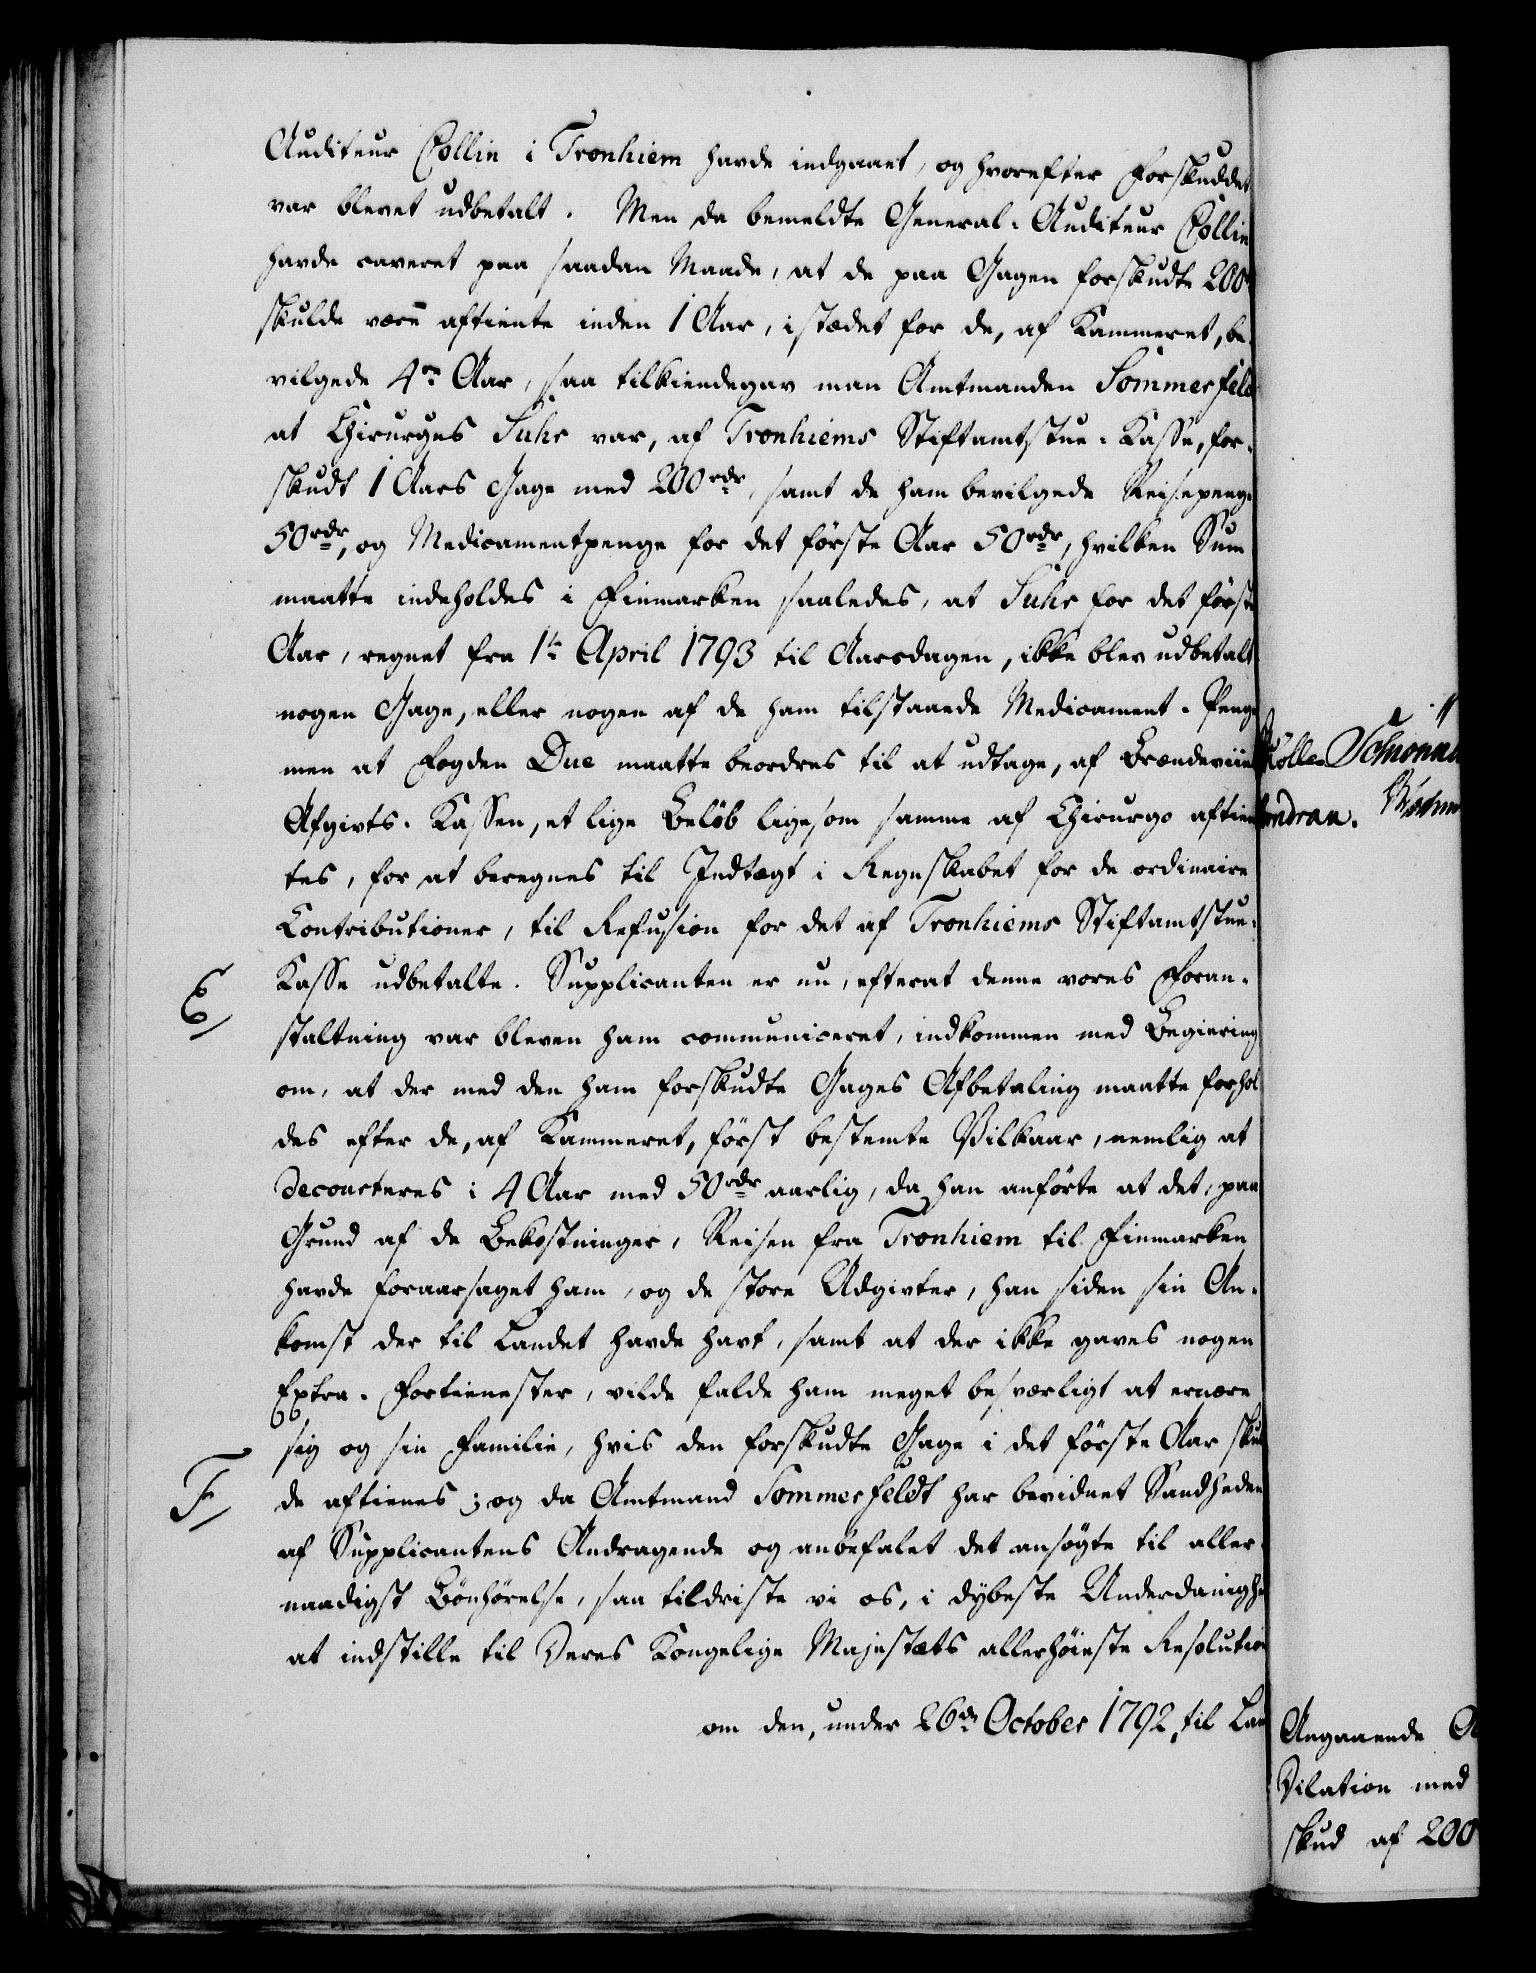 Auditeur Collin i Tronhiem havde indgaaet, og hvorefter Forskuddet
var blevet udbetalt. Men da bemeldte General-Auditeur Collin
havde caveret paa saadan Maade, at de paa Gagen forskudte 200
skulde være aftiente inden 1 Aar, istædet for de, af Kammeret, be-
vilgede 4re Aar, saa tilkiendegav man Amtmanden Sommerfeld
at Chirurgus Suhr var, af Tronhiems Stiftamtstue-Kasse, for-
skudt 1 Aars Gage med 200 rdr, samt de ham bevilgede Reisepenge
50 rdr, og Medicamentpenge for det første Aar 50 rdr, hvilken Sum
maatte indeholdes i Finmarken saaledes, at Suhr for det første
Aar, regnet fra 1te April 1793 til Aarsdagen, ikke blev udbetalt
nogen Gage, eller nogen af de ham tilstaaede Medicament-Penge
men at Fogden Due maatte beordres til at udtage, af Brændeviins
Afgivts-Kassen, et lige Beløb ligesom samme af Chirurgo aftien
tes, for at beregnes til Indtægt i Regnskabet for de ordinaire
Contributioner, til Refusion for det af Tronhiems Stiftamtstue-
Kasse udbetalte. Supplicanten er nu, efterat denne vores Foran-
E/
staltning var bleven ham communiceret, indkommen med Begiering
om, at der med den ham forskudte Gages Afbetaling maatte forhol
des efter de, af Kammeret, først bestemte Vilkaar, nemlig at
decourteres i 4 Aar med 50 rdr aarlig, da han anførte at det, paa
Grund af de Bekostninger, Reisen fra Tronhiem til Finmarken
havde foraarsaget ham, og de store Udgivter, han siden sin An-
komst der til Landet havde havt, samt at der ikke gaves nogen
Extra-Fortienester, vilde falde ham meget besværligt at ernære
sig og sin Familie, hvis den forskudte Gage i det første Aar skul
F/
de aftienes; og da Amtmand Sommerfeldt har bevidnet Sandheden
af Supplicantens Andragende og anbefalet det ansøgte til aller-
naadigst Bønhørelse, saa tildriste vi os, i dybeste Underdanighe
at indstille til Deres Kongelige Majestæts allerhøieste Resolution
om den, under 26de October 1792, til Lan
Angaaende
Dilation med
skud af 200